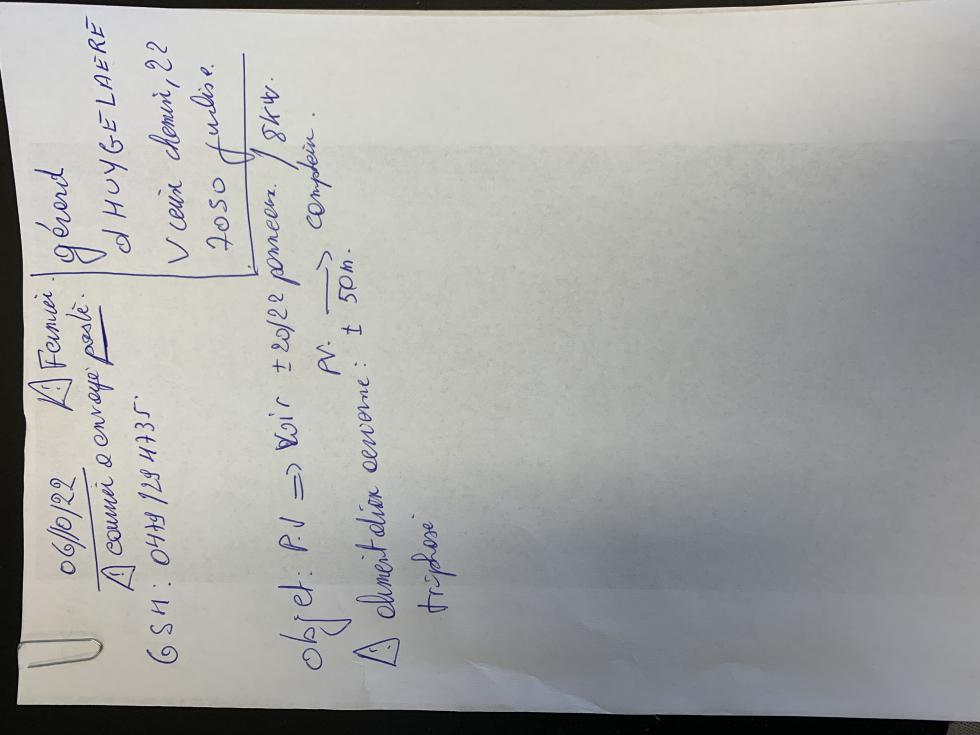 06/10/22
⚠ Fermier.
⚠ courrier à envoyé posté.
GSM: 0479/294735.
gérard
dHUYGELAERE
Vieux chemin, 22
7050 Jurbise.
objet: P.V => voir ± 20/22 panneaux / 8KW.
PV. → compteur.
⚠ alimentation aerienne: ± 50m.
triphasé